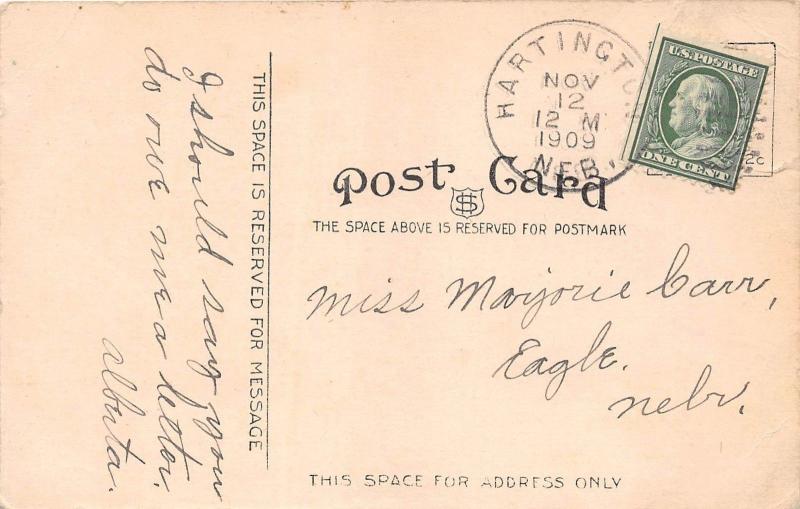 I should say you
do owe me a letter.
Alberta.
THIS SPACE IS RESERVED FOR MESSAGE
HARTINGTON
NOV
12
12 M
1909
NEB.
U.S. POSTAGE
ONE CENT
2c
Post Card
THE SPACE ABOVE IS RESERVED FOR POSTMARK
Miss Marjorie Carr,
Eagle.
Nebr.
THIS SPACE FOR ADDRESS ONLY